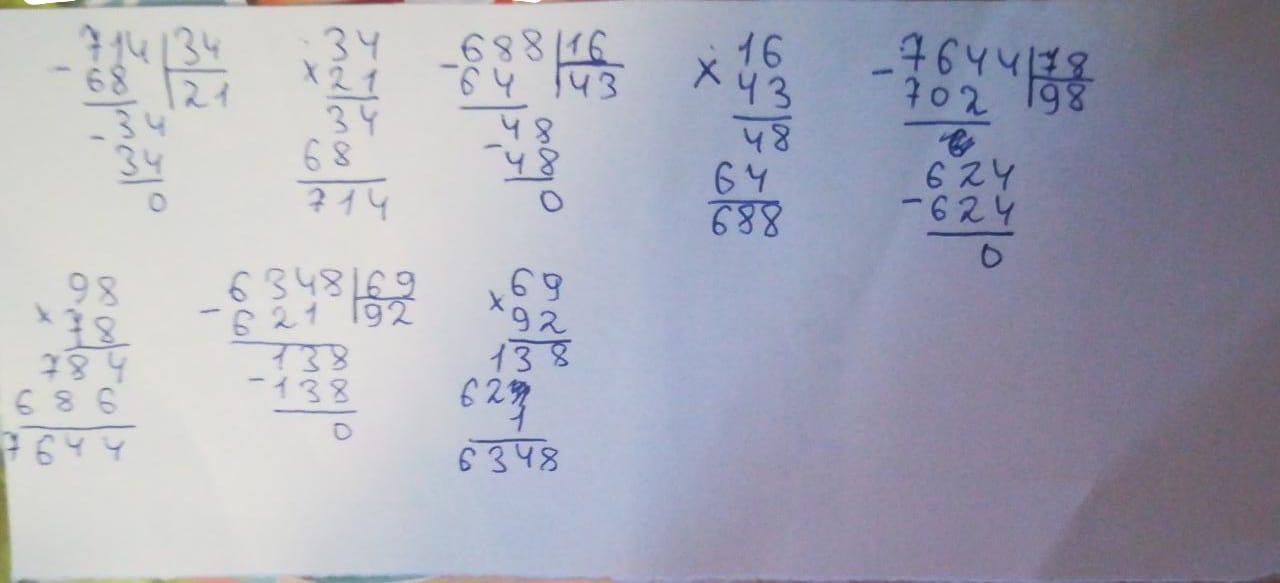 714 34
- 68 21
- 34
34
0
34
× 21
34
68
714
688 16
- 64 43
48
- 48
0
16
× 43
48
64
688
- 7644 78
702 98
624
- 624
0
98
× 78
784
686
7644
6348 69
- 621 92
138
- 138
0
69
× 92
138
62
1
6348